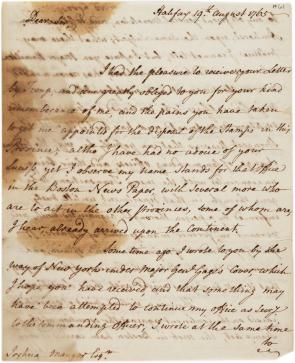 Halifax 19th. August 1765
Dear Sir
I had the pleasure to receive your Letter
by and am greatly obliged to you for your kind
remembrance of me, and the pains you have taken
to get me appointed for the dispose of the Stamps in this
Province; altho I have had no advice of your
yet I observe my name Stands for that Office
in the Boston News Paper, with several more who
are to act in the other provinces, some of whom are,
I hear, already arrived upon the Continent.
Some time ago I wrote to you by the
way of New York under Major Genl. Gage's Cover which
I hope you have received and that something may
have been attempted to continue my office as Secy.
to the Commanding Officer, I wrote at the Same time
to
Joshua Mauger Esqr.